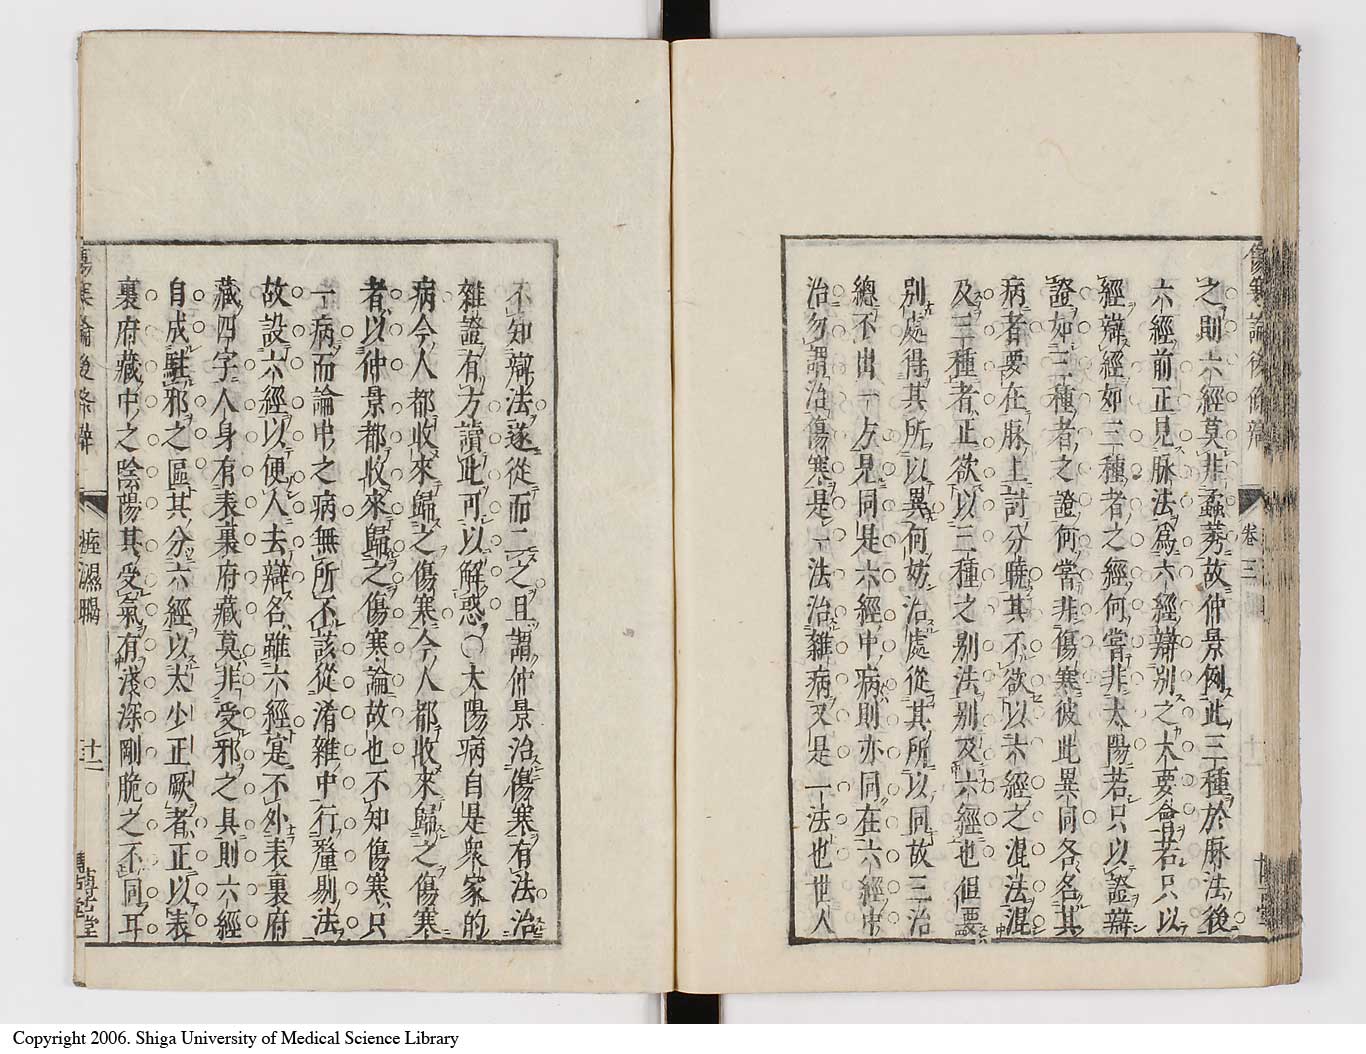 傷寒論後條辨
卷三
之則六經莫非蟊莠故仲景例此三種於脉法後
六經前正見脉法爲六經辯別之大要會若只以
經辯經如三種者之經何嘗非太陽若只以證辯
證如三種者之證何嘗非傷寒彼此異同各各其
病者要在脉上討分曉其不欲以六經之混法混
及三種者正欲以三種之别法别及六經也但要
别處得其所以異何妨治處從其所以同故三治
總不出一方見同是六經中病則亦同在六經中
治勿謂治傷寒是一法治雜病又是一法也世人
不知辯法遂從而二之且謂仲景治傷寒有法治
雜證有方讀此可以解惑〇太陽病自是衆家的
病今人都收來歸之傷寒今人都收來歸之傷寒
者以仲景都收來歸之傷寒論故也不知傷寒只
一病而論中之病無所不該從淆雜中行釐剔法
故設六經以便人去辯名雖六經寔不外表裏府
藏四字人身有表裏府藏莫非受邪之具則六經
自成駐邪之區其分六經以太少正厥者正以表
裏府藏中之陰陽其受氣有淺深剛脆之不同耳
傷寒論後條辨
痙濕暍
十二
博古堂
Copyright 2006. Shiga University of Medical Science Library